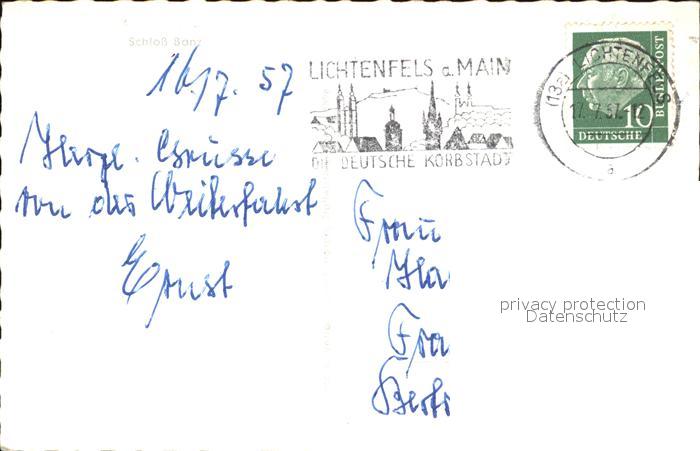 Schloß Banz
16/7. 57
Herzl. Grüsse
von der Weiterfahrt
Ernst
LICHTENFELS a. MAIN
DIE DEUTSCHE KORBSTADT
(13a) LICHTENFELS
17. 7. 57
10
DEUTSCHE
BUNDESPOST
Frau
privacy protection
Datenschutz